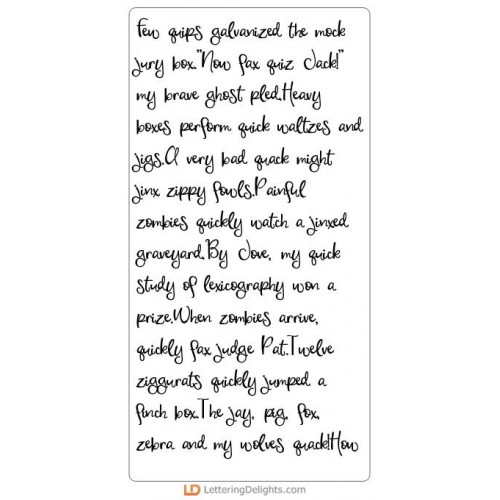 Few quips galvanized the mock
jury box."Now fax quiz Jack!"
my brave ghost pled.Heavy
boxes perform quick waltzes and
jigs.A very bad quack might
jinx zippy fowls.Painful
zombies quickly watch a jinxed
graveyard.By Jove, my quick
study of lexicography won a
prize.When zombies arrive,
quickly fax judge Pat.Twelve
ziggurats quickly jumped a
finch box.The jay, pig, fox,
zebra and my wolves quack!How
LD LetteringDelights.com